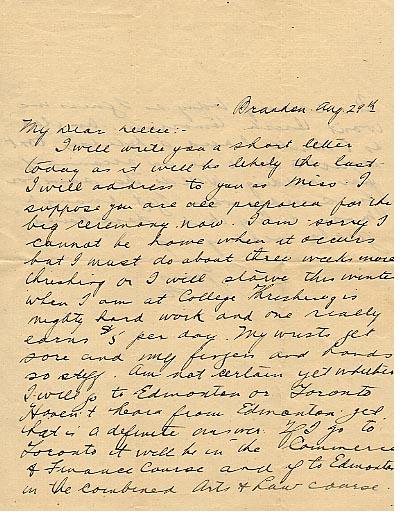 Brandon. Aug. 29th
My Dear Nellie:-
I will write you a short letter
today as it will be likely the last
I will address to you as Miss. I
suppose you are all prepared for the
big ceremony now. I am sorry I
cannot be home when it occurs
but I must do about three weeks more
threshing or I will starve this winter
when I am at College Threshing is
mighty hard work and one really
earns $5 per day. My wrists get
sore and my fingers and hands
so stiff. Am not certain yet whether
I will go to Edmonton or Toronto
Haven't heard from Edmonton yet
that is a definite answer. If I go to
Toronto it will be in the Commerce
& Finance Course and if to Edmonton
in the combined Arts & Law course.